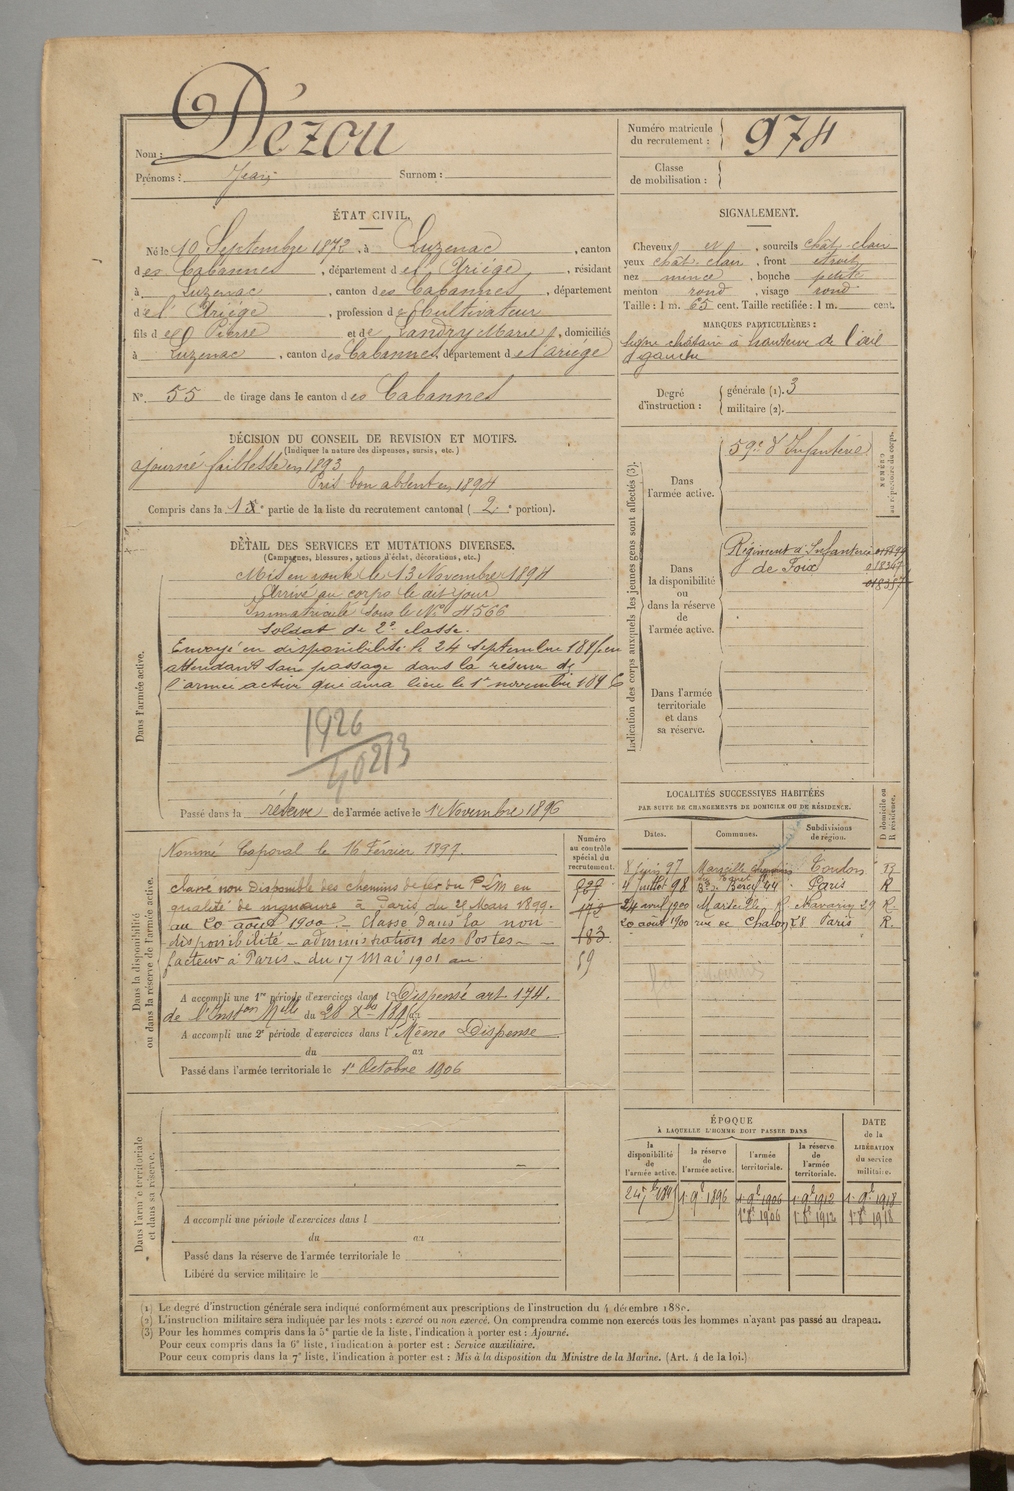 Nom : Dézou
Prénoms : Jean Surnom :
Numéro matricule du recrutement : 974
Classe de mobilisation :
ÉTAT CIVIL.
Né le 10 Septembre 1872, à Luzenac, canton
des Cabannes, département de l'Ariége, résidant
à Luzenac, canton des Cabannes, département
de l'Ariége, profession de Cultivateur
fils de Pierre et de Landry Marie, domiciliés
à Luzenac, canton des Cabannes, département de l'ariége
N° 55 de tirage dans le canton des Cabannes
SIGNALEMENT.
Cheveux et, sourcils chât-clair
yeux chât-clair, front étroit
nez mince, bouche petite
menton rond, visage rond
Taille : 1 m. 65 cent. Taille rectifiée : 1 m. cent.
MARQUES PARTICULIÈRES :
signe châtain à hauteur de l'œil
gauche
Degré d'instruction : générale (1). 3
militaire (2).
DÉCISION DU CONSEIL DE REVISION ET MOTIFS.
(Indiquer la nature des dispenses, sursis, etc.)
ajourné faiblesse en 1893
Pris bon absent en 1894
Compris dans la 1e partie de la liste du recrutement cantonal (2e portion).
DÉTAIL DES SERVICES ET MUTATIONS DIVERSES.
(Campagnes, blessures, actions d'éclat, décorations, etc.)
Dans l'armée active.
Mis en route le 13 Novembre 1894
Arrivé au corps le dit jour
Immatriculé sous le N° 4566
Soldat de 2e classe.
Envoyé en disponibilité le 24 septembre 1895 en
attendant son passage dans la réserve de
l'armée active qui aura lieu le 1er novembre 1896
1926
40213
Passé dans la réserve de l'armée active le 1er Novembre 1896
Indication des corps auxquels les jeunes gens sont affectés (3).
NUMÉRO au répertoire du corps.
Dans l'armée active.
59e d'Infanterie
Dans la disponibilité ou dans la réserve de l'armée active.
Régiment d'Infanterie
de Foix
018347
018357
Dans l'armée territoriale et dans sa réserve.
LOCALITÉS SUCCESSIVES HABITÉES
PAR SUITE DE CHANGEMENTS DE DOMICILE OU DE RÉSIDENCE.
Dates. Communes. Subdivisions de région. D domicile ou R résidence.
8 juin 97 Marseille Toulon R
4 juillet 98 Bd Bercy 44 Paris R
24 avril 1900 Marseille R Navarin 29 R
20 août 1900 rue de Chalon 28 Paris R.
Dans la disponibilité ou dans la réserve de l'armée active.
Numéro au contrôle spécial du recrutement.
Nommé Caporal le 16 Février 1897.
classé non disponible des chemins de fer du PLM en
qualité de manœuvre à Paris du 21 Mars 1899.
au 20 août 1900. Classé dans la non
disponibilité – administration des Postes –
facteur à Paris – du 17 Mai 1901 au
183
59
A accompli une 1re période d'exercices dans l Dispensé art. 174.
de l'Inston Mlle du 28 Xbre 1895 au
A accompli une 2e période d'exercices dans l Même Dispense
du au
Passé dans l'armée territoriale le 1er Octobre 1906
Dans l'armée territoriale et dans sa réserve.
A accompli une période d'exercices dans l
du au
Passé dans la réserve de l'armée territoriale le
Libéré du service militaire le
ÉPOQUE
À LAQUELLE L'HOMME DOIT PASSER DANS
la disponibilité de l'armée active. la réserve de l'armée active. l'armée territoriale. la réserve de l'armée territoriale. DATE de la LIBÉRATION du service militaire.
24 7bre 1895 1er 9bre 1896 1er 9bre 1906 1er 9bre 1912 1er 9bre 1918
1er 8bre 1906 1er 8bre 1912 1er 8bre 1918
(1) Le degré d'instruction générale sera indiqué conformément aux prescriptions de l'instruction du 4 décembre 1889.
(2) L'instruction militaire sera indiquée par les mots : exercé ou non exercé. On comprendra comme non exercés tous les hommes n'ayant pas passé au drapeau.
(3) Pour les hommes compris dans la 5e partie de la liste, l'indication à porter est : Ajourné.
Pour ceux compris dans la 6e liste, l'indication à porter est : Service auxiliaire.
Pour ceux compris dans la 7e liste, l'indication à porter est : Mis à la disposition du Ministre de la Marine. (Art. 4 de la loi.)